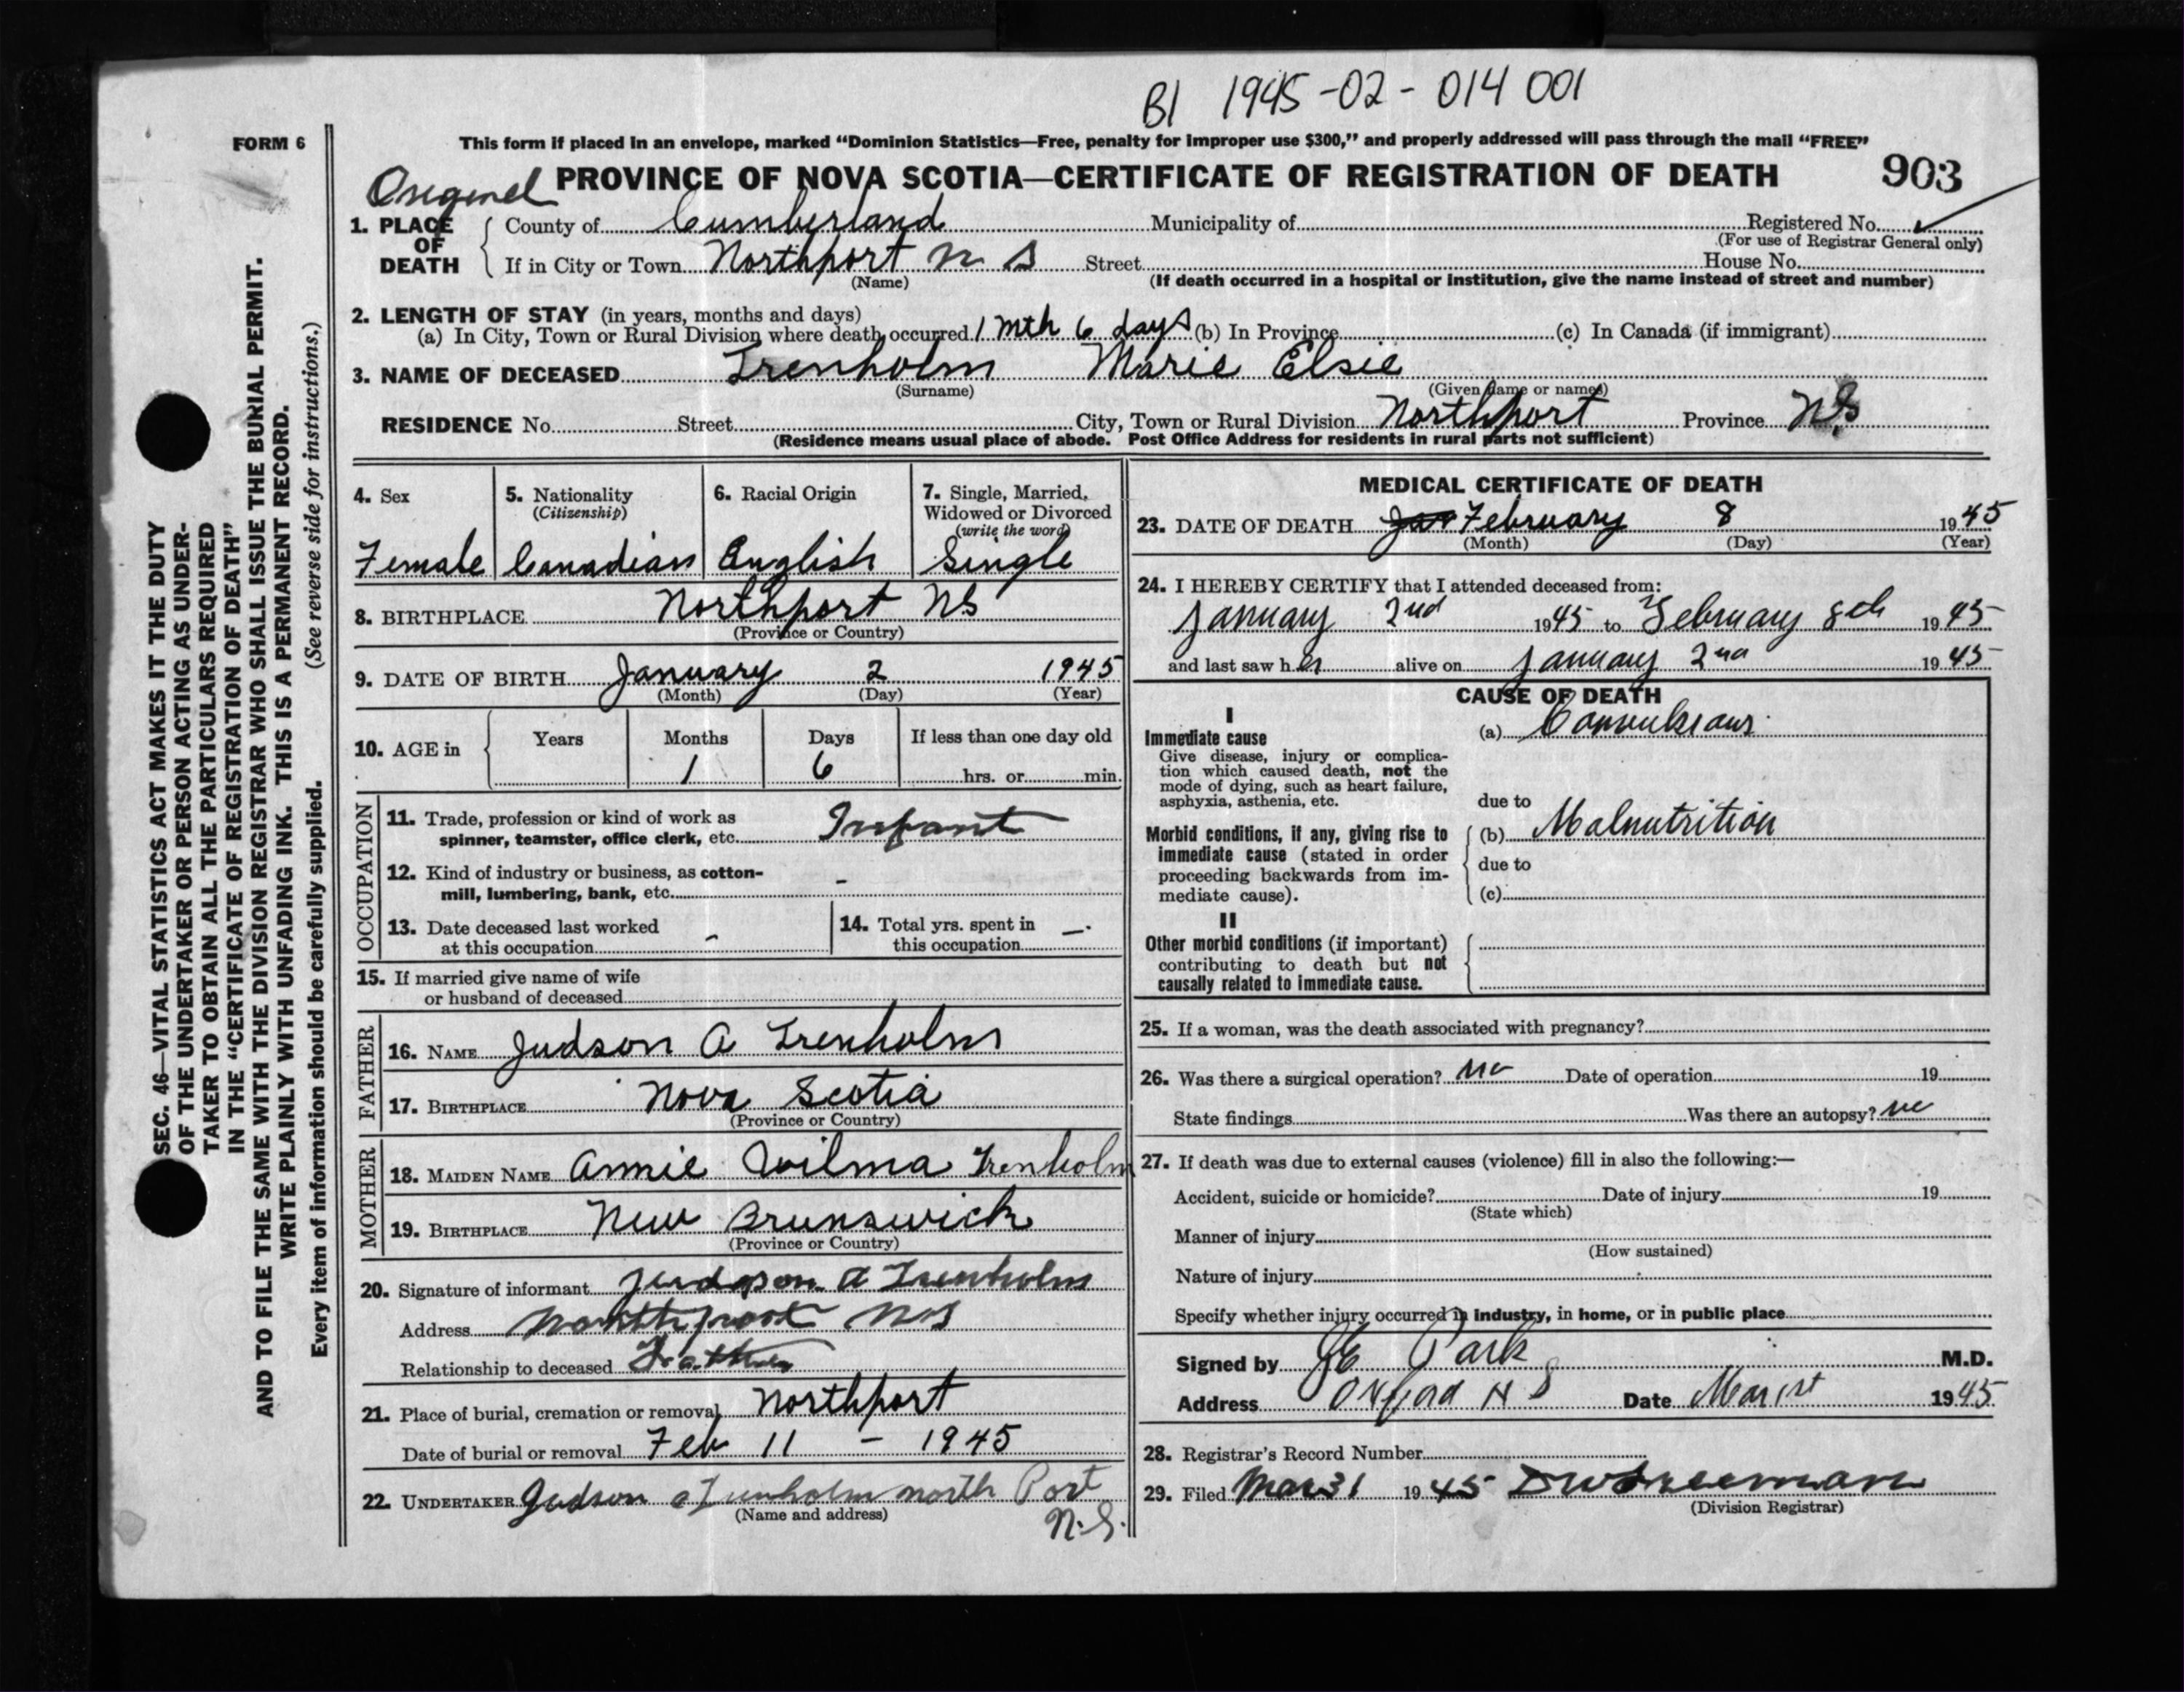 B1 1945-02-014 001
FORM 6
This form if placed in an envelope, marked "Dominion Statistics—Free, penalty for improper use $300," and properly addressed will pass through the mail "FREE"
Original PROVINCE OF NOVA SCOTIA—CERTIFICATE OF REGISTRATION OF DEATH 903
1. PLACE OF DEATH
County of Cumberland Municipality of Registered No.
(For use of Registrar General only)
If in City or Town Northport N S Street House No.
(Name) (If death occurred in a hospital or institution, give the name instead of street and number)
2. LENGTH OF STAY (in years, months and days)
(a) In City, Town or Rural Division where death occurred 1 mth 6 days (b) In Province (c) In Canada (if immigrant)
3. NAME OF DECEASED Trenholm Marie Elsie
(Surname) (Given name or names)
RESIDENCE No. Street City, Town or Rural Division Northport Province NS
(Residence means usual place of abode. Post Office Address for residents in rural parts not sufficient)
4. Sex
Female
5. Nationality
(Citizenship)
Canadian
6. Racial Origin
English
7. Single, Married, Widowed or Divorced
(write the word)
Single
8. BIRTHPLACE Northport NS
(Province or Country)
9. DATE OF BIRTH January 2 1945
(Month) (Day) (Year)
10. AGE in Years Months Days If less than one day old
1 6 hrs. or min.
OCCUPATION
11. Trade, profession or kind of work as
spinner, teamster, office clerk, etc. Infant
12. Kind of industry or business, as cotton-
mill, lumbering, bank, etc. -
13. Date deceased last worked
at this occupation -
14. Total yrs. spent in
this occupation —.
15. If married give name of wife
or husband of deceased
FATHER
16. NAME Judson A Trenholm
17. BIRTHPLACE Nova Scotia
(Province or Country)
MOTHER
18. MAIDEN NAME Annie Wilma Trenholm
19. BIRTHPLACE New Brunswick
(Province or Country)
20. Signature of informant Judson A Trenholm
Address Northport NS
Relationship to deceased Father
21. Place of burial, cremation or removal Northport
Date of burial or removal Feb 11 - 1945
22. UNDERTAKER Judson a Trenholm north Port
(Name and address) N.S.
MEDICAL CERTIFICATE OF DEATH
23. DATE OF DEATH Jan February 8 1945
(Month) (Day) (Year)
24. I HEREBY CERTIFY that I attended deceased from:
January 2nd 1945 to February 8th 1945
and last saw her alive on January 2nd 1945
CAUSE OF DEATH
I
Immediate cause
Give disease, injury or complica-
tion which caused death, not the
mode of dying, such as heart failure,
asphyxia, asthenia, etc.
(a) Convulsions
due to
Morbid conditions, if any, giving rise to
immediate cause (stated in order
proceeding backwards from im-
mediate cause).
(b) Malnutrition
due to
(c)
II
Other morbid conditions (if important)
contributing to death but not
causally related to immediate cause.
25. If a woman, was the death associated with pregnancy?
26. Was there a surgical operation? no Date of operation 19
State findings Was there an autopsy? no
27. If death was due to external causes (violence) fill in also the following:—
Accident, suicide or homicide? Date of injury 19
(State which)
Manner of injury
(How sustained)
Nature of injury
Specify whether injury occurred in industry, in home, or in public place
Signed by Park M.D.
Address Oxford N S Date Mar 1st 1945
28. Registrar's Record Number
29. Filed Mar 31 1945 DW Freeman
(Division Registrar)
SEC. 46—VITAL STATISTICS ACT MAKES IT THE DUTY
OF THE UNDERTAKER OR PERSON ACTING AS UNDER-
TAKER TO OBTAIN ALL THE PARTICULARS REQUIRED
IN THE "CERTIFICATE OF REGISTRATION OF DEATH"
AND TO FILE THE SAME WITH THE DIVISION REGISTRAR WHO SHALL ISSUE THE BURIAL PERMIT.
WRITE PLAINLY WITH UNFADING INK. THIS IS A PERMANENT RECORD.
Every item of information should be carefully supplied. (See reverse side for instructions.)